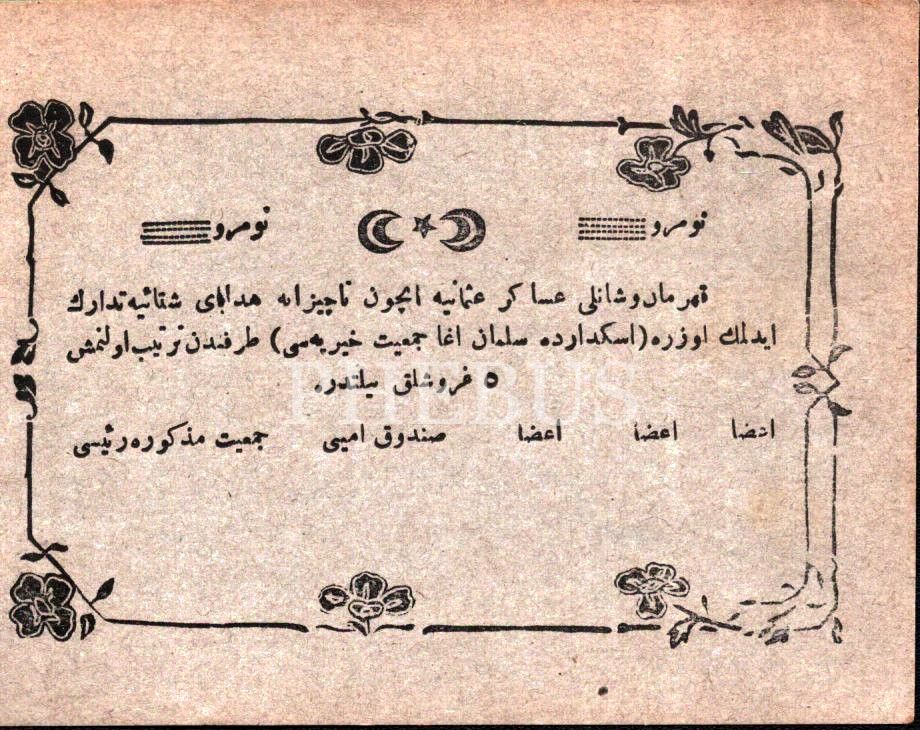 نومرو نومرو
قهرمان وشانلی عساكر عثمانیه ایچون ناچیزانه هدایای شتائیه تدارك
ایدلمك اوزره (اسكدارده سلمان اغا جمعیت خیریه‌سی) طرفندن ترتیب اولنمش
٥ غروشلق بیلتدر
اعضا اعضا اعضا صندوق امینی جمعیت مذكوره رئیسی
PHEBUS